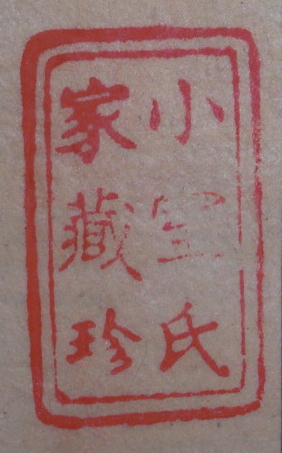 小室氏
家藏珍